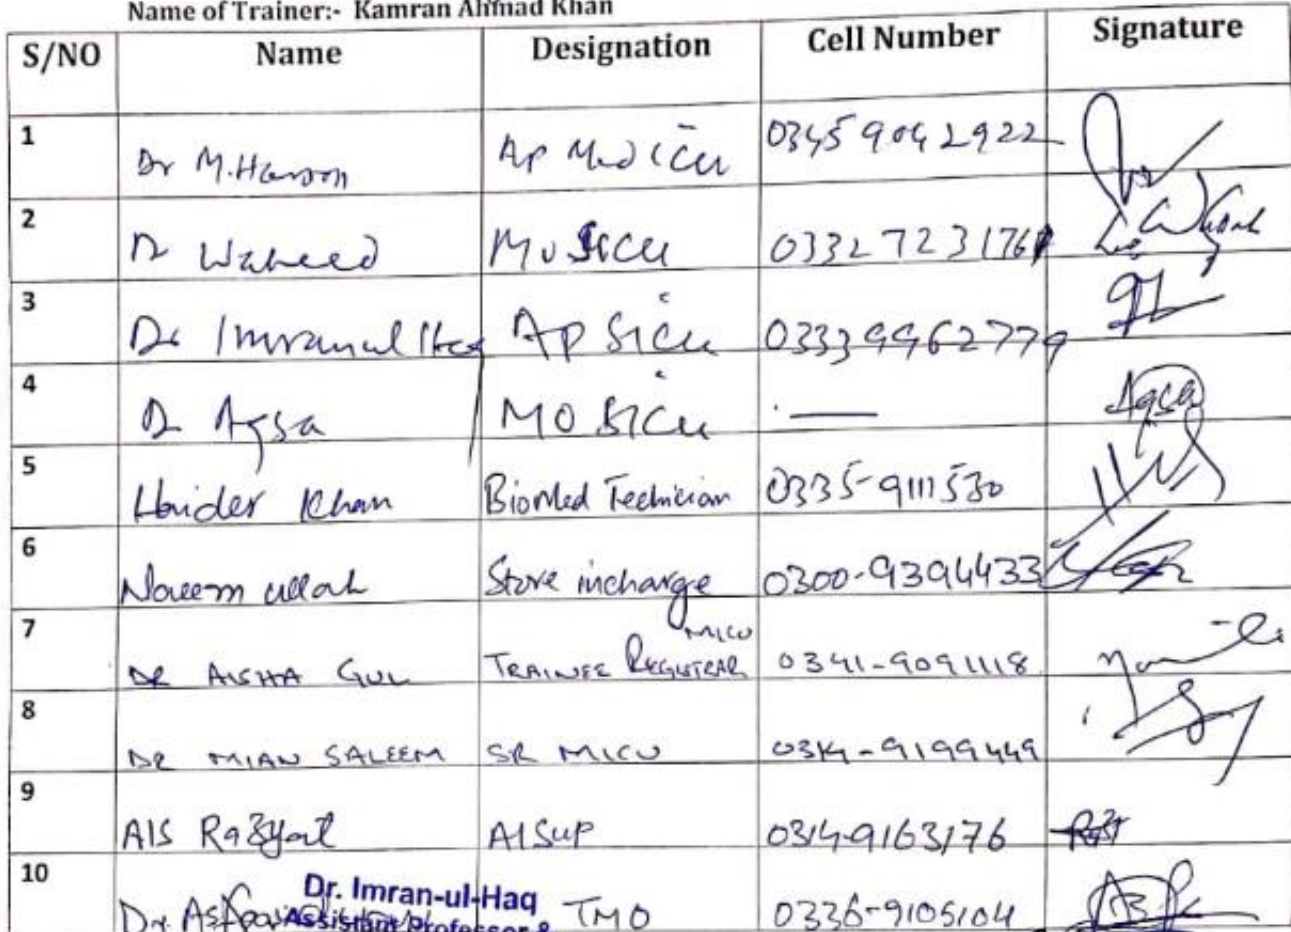 Name of Trainer:- Kamran Ahmad Khan
S/NO Name Designation Cell Number Signature
1 Dr M.Hason AP Med ICU 03459042922
2 Dr Waheed MO SICU 0332723176
3 Dr Imranul Haq AP SICU 03339962779
4 Dr Aqsa MO SICU — Aqsa
5 Haider Khan BioMed Technician 0335-9111530
6 Naeem ullah Store incharge 0300-9394433
7 DR AISHA GUL TRAINEE REGISTRAR MICU 0341-9091118
8 DR MIAN SALEEM SR MICU 0314-9199449
9 AIS 0314-9163176
10 Dr. TMO 0336-9105104
Dr. Imran-ul-Haq
Assistant Professor &